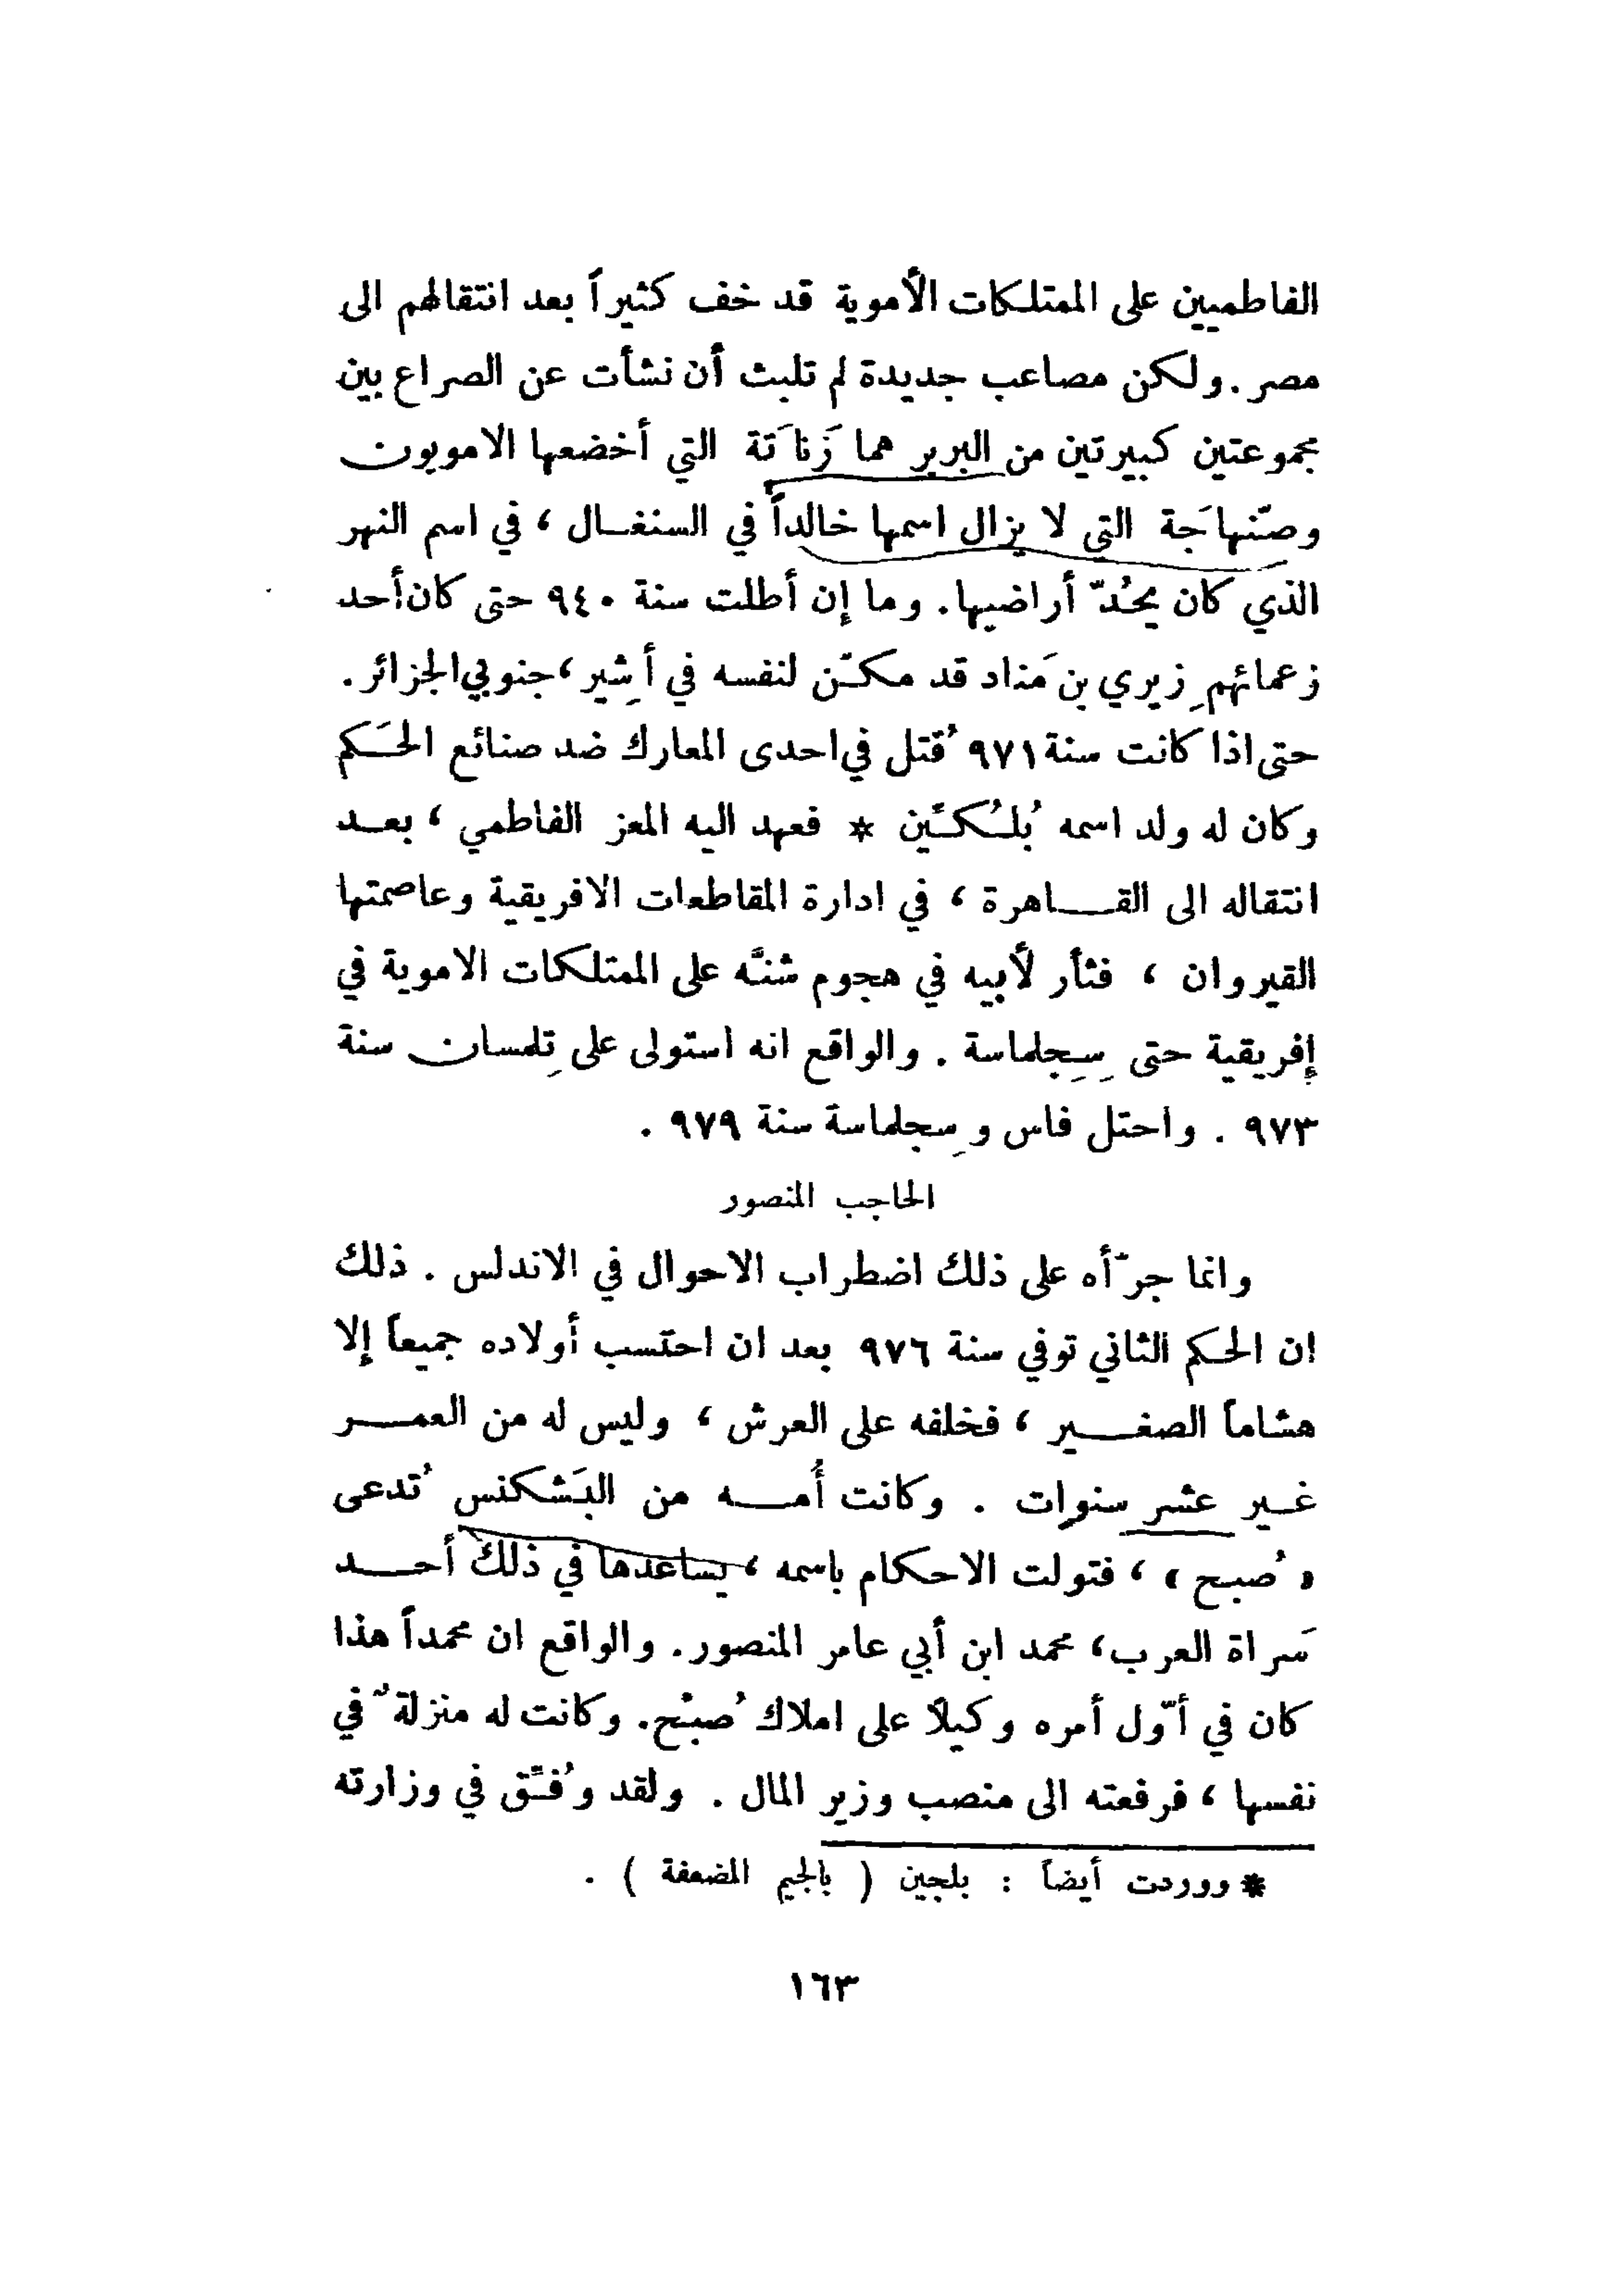 الفاطميين على الممتلكات الأموية قد خف كثيراً بعد انتقالهم الى
مصر . ولكن مصاعب جديدة لم تلبث أن نشأت عن الصراع بين
مجموعتين كبيرتين من البربر هما زَناَتة التي أخضعها الامويون
وصّنهاَجة التي لا يزال اسمها خالداً في السنغال ، في اسم النهر
الذي كان يحُدّ أراضيها . وما إن أطلت سنة ٩٤٠ حتى كان أحد
زعمائهم زِيري بن مَناد قد مكّن لنفسه في أشِير ، جنوبي الجزائر .
حتى اذا كانت سنة ٩٧١ قُتل في احدى المعارك ضد صنائع الحَكم
وكان له ولد اسمه بُلُكّين * فعهد اليه المعز الفاطمي ، بعد
انتقاله الى القاهرة ، في ادارة المقاطعات الافريقية وعاصمتها
القيروان ، فثأر لأبيه في هجوم شنَّه على الممتلكات الاموية في
إفريقية حتى سِجِلماسة . والواقع انه استولى على تِلمسان سنة
٩٧٣ . واحتل فاس وسِجلماسة سنة ٩٧٩ .
الحاجب المنصور
وانما جرّأه على ذلك اضطراب الاحوال في الاندلس . ذلك
ان الحكم الثاني توفي سنة ٩٧٦ بعد ان احتسب أولاده جميعاً إلا
هشاماً الصغير ، فخلفه على العرش ، وليس له من العمر
غير عشر سنوات . وكانت أُمه من البَشكنس تُدعى
« صُبح » ، فتولت الاحكام باسمه ، يساعدها في ذلك أحد
سَراة العرب ، محمد ابن أبي عامر المنصور . والواقع ان محمداً هذا
كان في أوّل أمره وكيلاً على املاك صُبْح . وكانت له منزلةٌ في
نفسها ، فرفعته الى منصب وزير المال . ولقد وُفّق في وزارته
* ووردت أيضاً : بلجين ( بالجيم المضعفة ) .
١٦٣